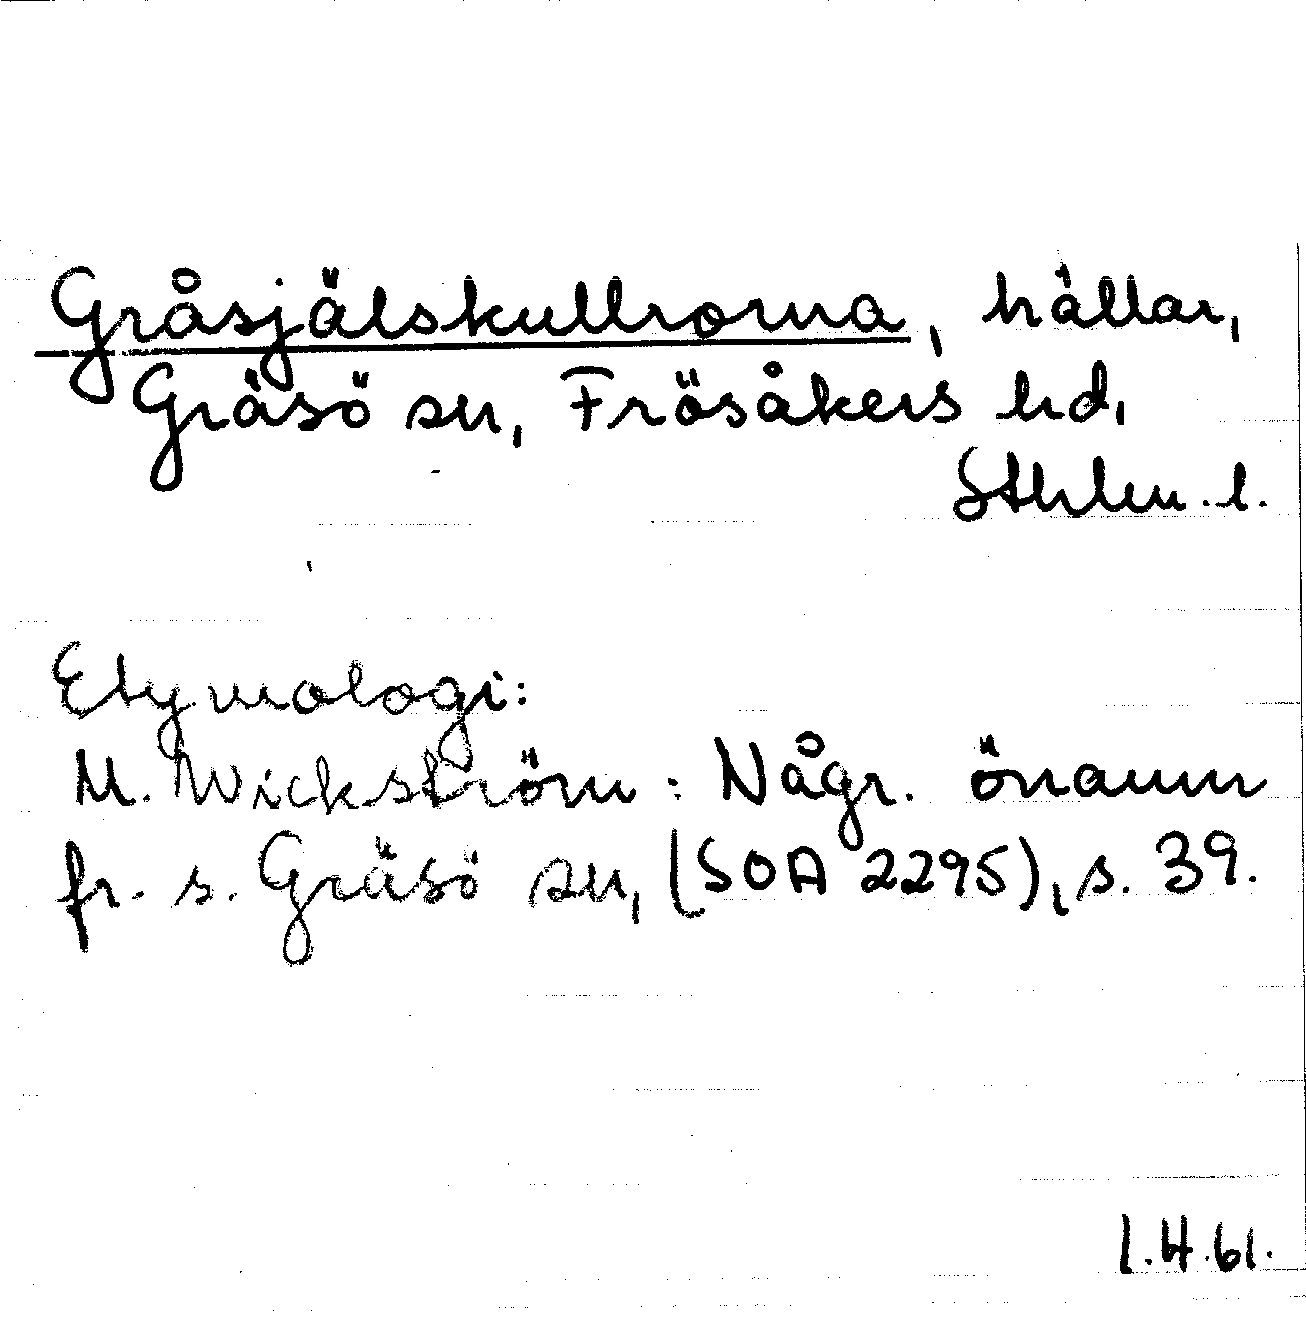 Gråsjälskullrorna, hällar,
Gräsö sn, Frösåkers hd,
Sthlm. l.
Etymologi:
M. Wickström: Någr. önamn
fr. s. Gräsö sn, (SOA 2295), s. 39.
I.H.61.